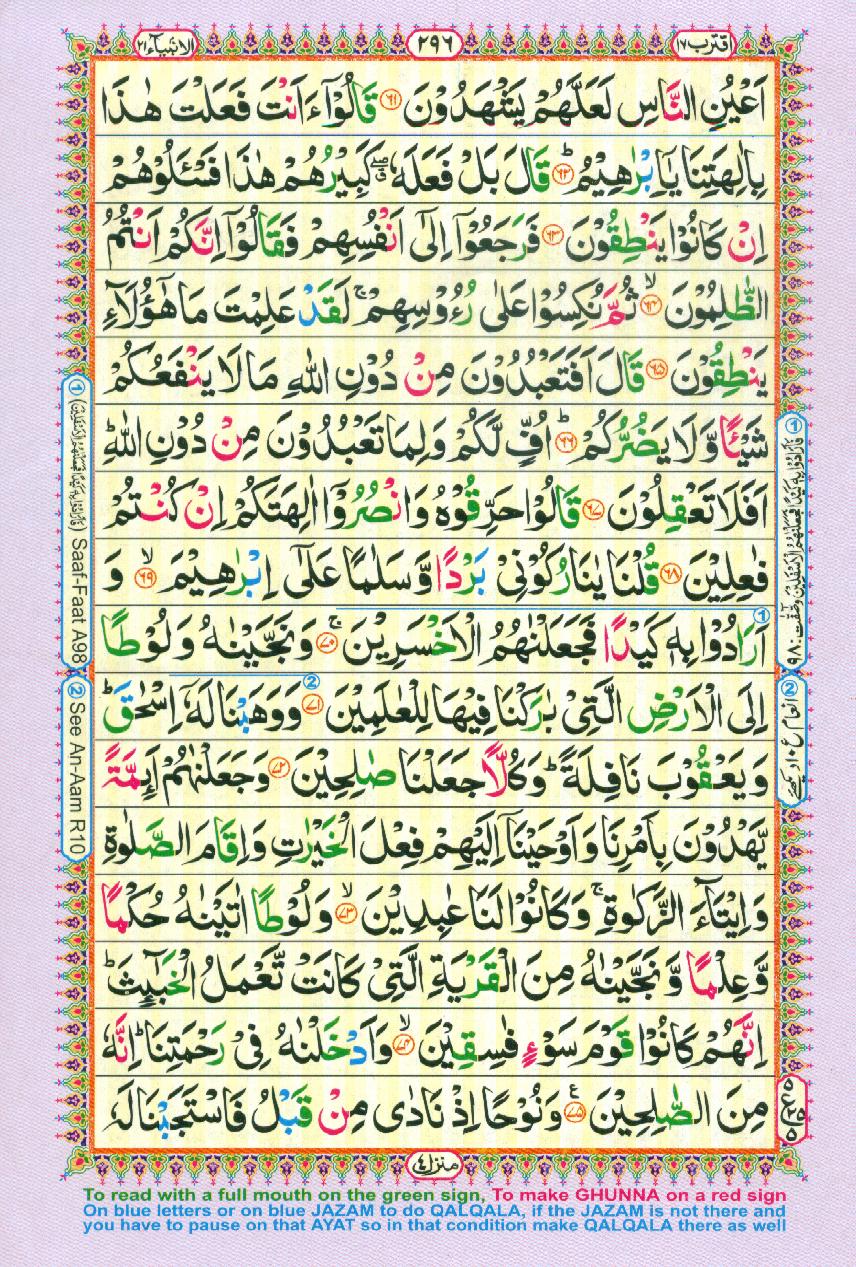 اقترب ١٧
٢٩٦
الانبیآء ٢١
اَعۡیُنِ النَّاسِ لَعَلَّهُمۡ یَشۡهَدُوۡنَ ﴿٦١﴾ قَالُوۡۤا ءَاَنۡتَ فَعَلۡتَ هٰذَا
بِاٰلِهَتِنَا یٰۤاِبۡرٰهِیۡمُ ؕ﴿٦٢﴾ قَالَ بَلۡ فَعَلَهٗ ٭ۖ کَبِیۡرُهُمۡ هٰذَا فَسۡـَٔلُوۡهُمۡ
اِنۡ کَانُوۡا یَنۡطِقُوۡنَ ﴿٦٣﴾ فَرَجَعُوۡۤا اِلٰۤی اَنۡفُسِهِمۡ فَقَالُوۡۤا اِنَّکُمۡ اَنۡتُمُ
الظّٰلِمُوۡنَ ﴿ۙ٦٤﴾ ثُمَّ نُکِسُوۡا عَلٰی رُءُوۡسِهِمۡ ۚ لَقَدۡ عَلِمۡتَ مَا هٰۤؤُلَآءِ
یَنۡطِقُوۡنَ ﴿٦٥﴾ قَالَ اَفَتَعۡبُدُوۡنَ مِنۡ دُوۡنِ اللّٰهِ مَا لَا یَنۡفَعُکُمۡ
شَیۡـًٔا وَّلَا یَضُرُّکُمۡ ﴿ؕ٦٦﴾ اُفٍّ لَّکُمۡ وَلِمَا تَعۡبُدُوۡنَ مِنۡ دُوۡنِ اللّٰهِ ؕ
اَفَلَا تَعۡقِلُوۡنَ ﴿٦٧﴾ قَالُوۡا حَرِّقُوۡهُ وَانۡصُرُوۡۤا اٰلِهَتَکُمۡ اِنۡ کُنۡتُمۡ
فٰعِلِیۡنَ ﴿٦٨﴾ قُلۡنَا یٰنَارُ کُوۡنِیۡ بَرۡدًا وَّسَلٰمًا عَلٰۤی اِبۡرٰهِیۡمَ ﴿ۙ٦٩﴾ وَ
اَرَادُوۡا بِهٖ کَیۡدًا فَجَعَلۡنٰهُمُ الۡاَخۡسَرِیۡنَ ﴿ۚ٧٠﴾ وَنَجَّیۡنٰهُ وَلُوۡطًا
اِلَی الۡاَرۡضِ الَّتِیۡ بٰرَکۡنَا فِیۡهَا لِلۡعٰلَمِیۡنَ ﴿٧١﴾ وَوَهَبۡنَا لَهٗۤ اِسۡحٰقَ ؕ
وَیَعۡقُوۡبَ نَافِلَةً ؕ وَکُلًّا جَعَلۡنَا صٰلِحِیۡنَ ﴿٧٢﴾ وَجَعَلۡنٰهُمۡ اَئِمَّةً
یَّهۡدُوۡنَ بِاَمۡرِنَا وَاَوۡحَیۡنَاۤ اِلَیۡهِمۡ فِعۡلَ الۡخَیۡرٰتِ وَاِقَامَ الصَّلٰوةِ
وَاِیۡتَآءَ الزَّکٰوةِ ۚ وَکَانُوۡا لَنَا عٰبِدِیۡنَ ﴿ۙ٧٣﴾ وَلُوۡطًا اٰتَیۡنٰهُ حُکۡمًا
وَّعِلۡمًا وَّنَجَّیۡنٰهُ مِنَ الۡقَرۡیَةِ الَّتِیۡ کَانَتۡ تَّعۡمَلُ الۡخَبٰٓئِثَ ؕ
اِنَّهُمۡ کَانُوۡا قَوۡمَ سَوۡءٍ فٰسِقِیۡنَ ﴿ۙ٧٤﴾ وَاَدۡخَلۡنٰهُ فِیۡ رَحۡمَتِنَا ؕ اِنَّهٗ
مِنَ الصّٰلِحِیۡنَ ﴿٧٥﴾ وَنُوۡحًا اِذۡ نَادٰی مِنۡ قَبۡلُ فَاسۡتَجَبۡنَا لَهٗ
منزل ٤
Saaf-Faat A98
② See An-Aam R 10
To read with a full mouth on the green sign, To make GHUNNA on a red sign
On blue letters or on blue JAZAM to do QALQALA, if the JAZAM is not there and
you have to pause on that AYAT so in that condition make QALQALA there as well